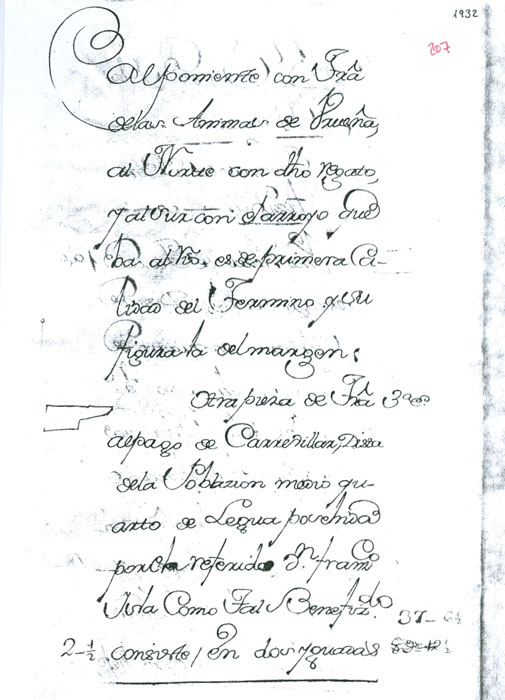 1932
207
al poniente, con Trâ
delas Animas de Prueña,
al Norte con dho regato,
y al Sur con Sarroyo que
ba al Rio, es de primera Ca-
lidad del Termino y su
figura la del margen:
Otra pieza de Trâ
al pago de Carresillar, Dista
dela Poblazion medio qu-
arto de Legua posehida
por el referido Dn. franco
Avila Como Tal Benefizdo.
37-
2-½ consiste, en dos yguadas